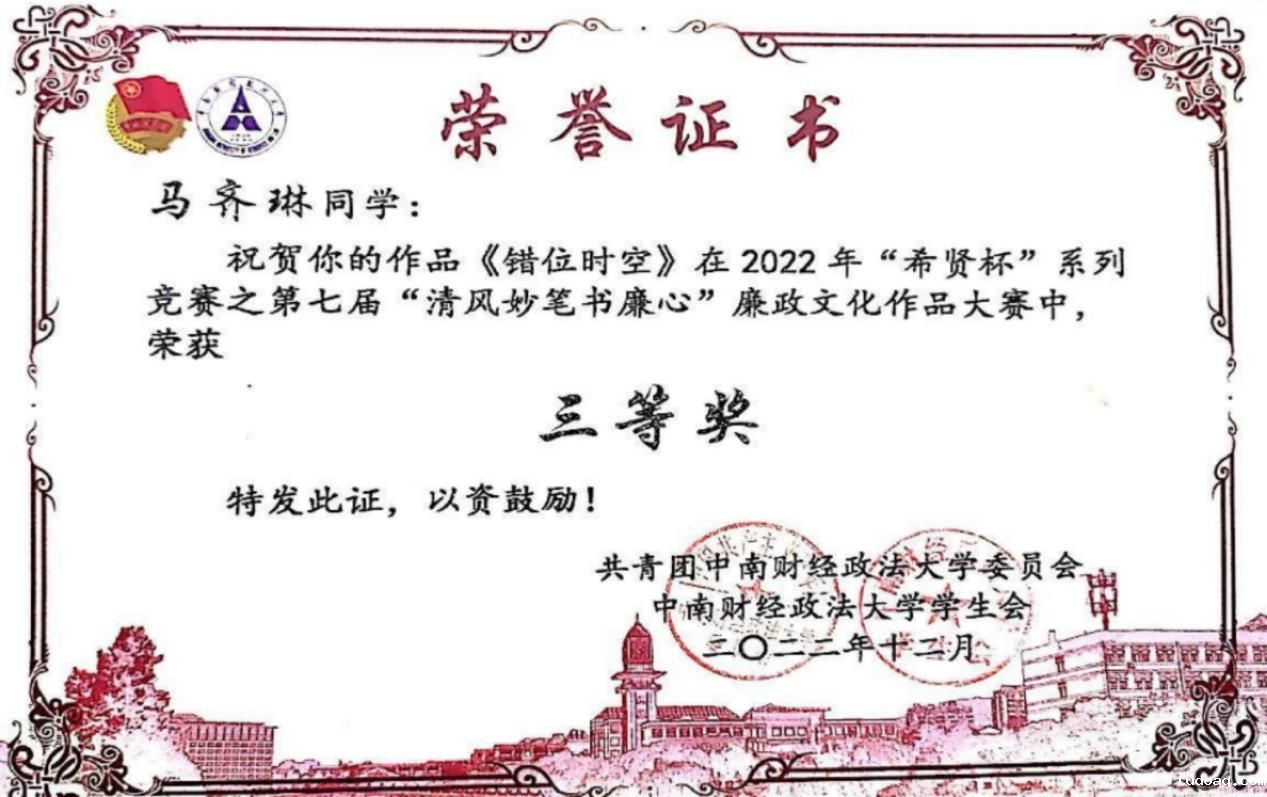 荣誉证书
马齐琳同学：
祝贺你的作品《错位时空》在2022年“希贤杯”系列
竞赛之第七届“清风妙笔书廉心”廉政文化作品大赛中，
荣获
三等奖
特发此证，以资鼓励！
共青团中南财经政法大学委员会
中南财经政法大学学生会
二〇二二年十二月